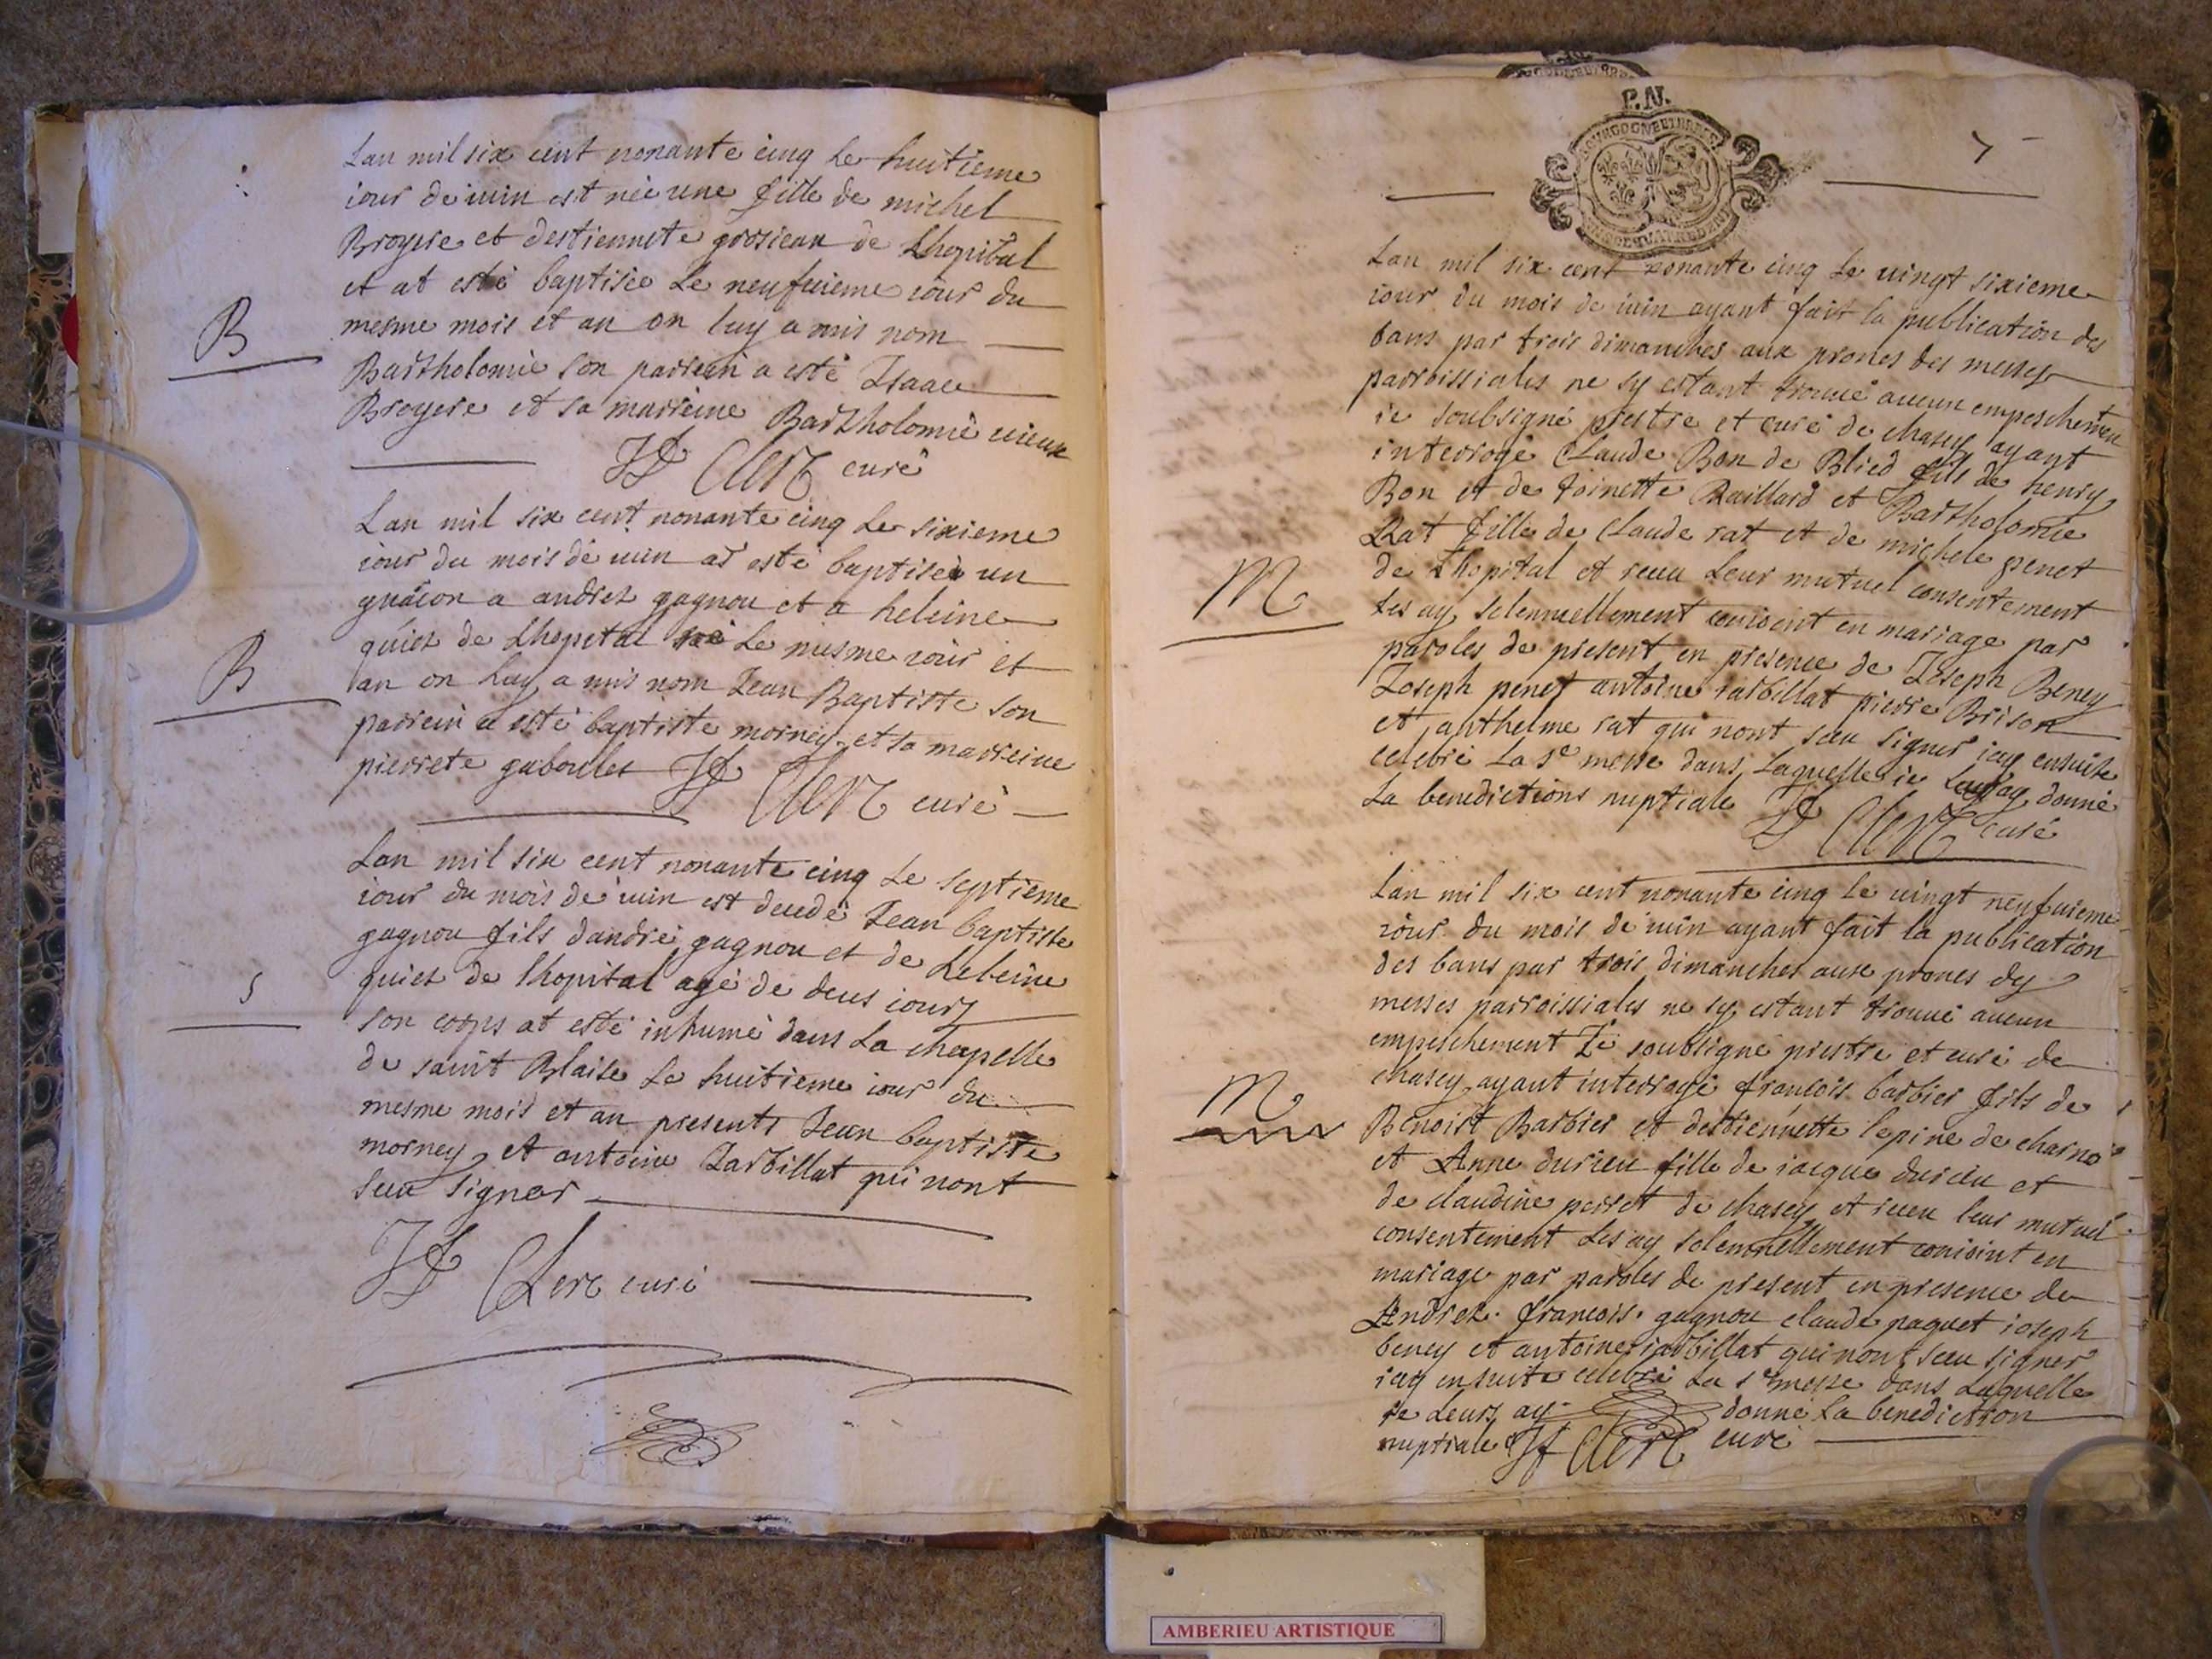 Lan mil six cent nonante cinq le huitieme
iour de iuin est neè une fille de michel
Broyere et destiennete grosjean de Lhopital
et at estè baptisée Le neufuieme iour du
mesme mois et an on luy a mis nom
B
Bartholomie son parrein a estè Isaac
Broyere et sa marreine Bartholomie
J Clerc curè
Lan mil six cent nonante cinq Le sixieme
iour du mois de iuin at estè baptisè un
guarcon a andrez gagnou et a heleine
quiet de Lhopital nè Le mesme iour et
B
an on Luy a mis nom Jean Baptiste son
parrein a estè baptiste morney et sa marreine
pierrete
J Clerc curè
Lan mil six cent nonante cinq Le septieme
iour du mois de iuin est decedè Jean baptiste
gagnou fils dandrè gagnou et de heleine
quiet de lhopital agè de deus iours
S
son corps at estè inhumè dans La chapelle
de saint Blaise Le huitieme iour du
mesme mois et an presents Jean baptiste
morney et antoine Jarbillat qui nont
sceu signer
J Clerc curè
P.N.
7
Lan mil six cent nonante cinq Le uingt sixieme
iour du mois de iuin ayant fait la publication des
bans par trois dimanches aux prones des messes
parroissiales ne sy estant trouuè aucun empeschement
ie soubsignè prestre et curè de chasey ayant
interrogè Claude Bon de Blied fils de henry
Bon et de toinette Raillard et Bartholomie
Rat fille de Claude rat et de michele penet
de Lhopital et receu Leur mutuel consentement
M
Les ay solennellement conioint en mariage par
paroles de present en presence de Joseph Beney
Joseph penet antoine iarbillat pierre Brison
et anthelme rat qui nont sceu signer iay ensuite
celebrè La Se messe dans Laquelle ie donnè
La benedictions nuptiale J Clerc curè
Lan mil six cent nonante cinq le uingt neufuieme
iour du mois de iuin ayant fait la publication
des bans par trois dimanches aux prones des
messes parroissiales ne sy estant trouuè aucun
empeschement Je soubsignè prestre et curè de
chasey ayant interrogè francois barbier fils de
M
Benoist Barbier et destiennette lepine de
et Anne durieu fille de iacque durieu et
de claudine perret de chasey et receu leur mutuel
consentement Les ay solemnellement conioint en
mariage par paroles de present en presence de
Andrez francois gagnou claude paquet ioseph
beney et antoine iarbillat qui nont sceu signer
iay ensuite celebrè La Se messe dans Laquelle
ie Leurs ay donnè La benediction
nuptiale J Clerc curè
AMBERIEU ARTISTIQUE